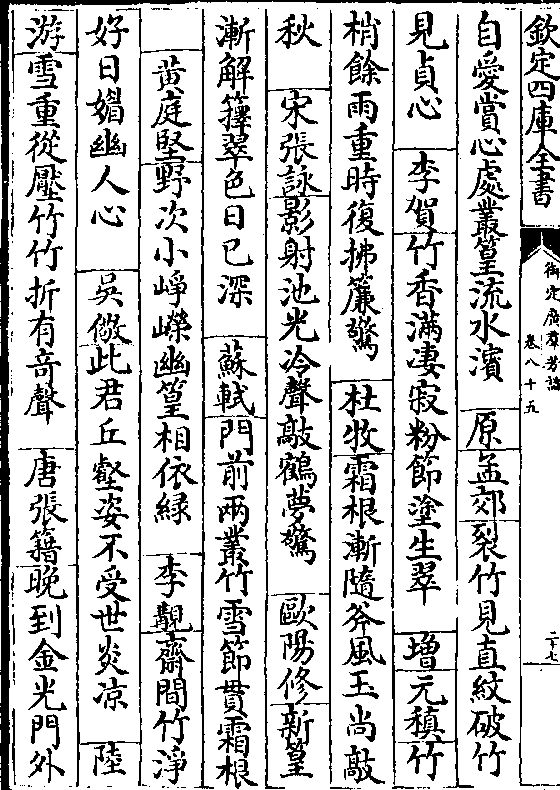 欽定四庫全書
御定廣羣芳譜
卷八十五
二十七
自愛賞心處叢篁流水濱　原孟郊裂竹見直紋破竹
見貞心　李賀竹香滿凄寂粉節塗生翠　增元稹竹
梢餘雨重時復拂簾驚　杜牧霜根漸隨斧風玉尚敲
秋　宋張詠影射池光冷聲敲鶴夢驚　歐陽修新篁
漸解籜翠色日已深　蘇軾門前兩叢竹雪節貫霜根
黃庭堅野次小崢嶸幽篁相依緑　李覯齋間竹淨
好日媚幽人心　吳儆此君丘壑姿不受世炎凉　陸
游雪重從壓竹竹折有奇聲　唐張籍晚到金光門外